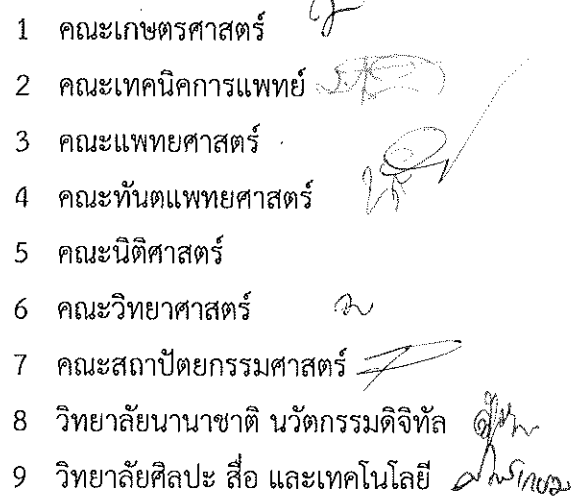 1 คณะเกษตรศาสตร์
2 คณะเทคนิคการแพทย์
3 คณะแพทยศาสตร์
4 คณะทันตแพทยศาสตร์
5 คณะนิติศาสตร์
6 คณะวิทยาศาสตร์
7 คณะสถาปัตยกรรมศาสตร์
8 วิทยาลัยนานาชาติ นวัตกรรมดิจิทัล
9 วิทยาลัยศิลปะ สื่อ และเทคโนโลยี